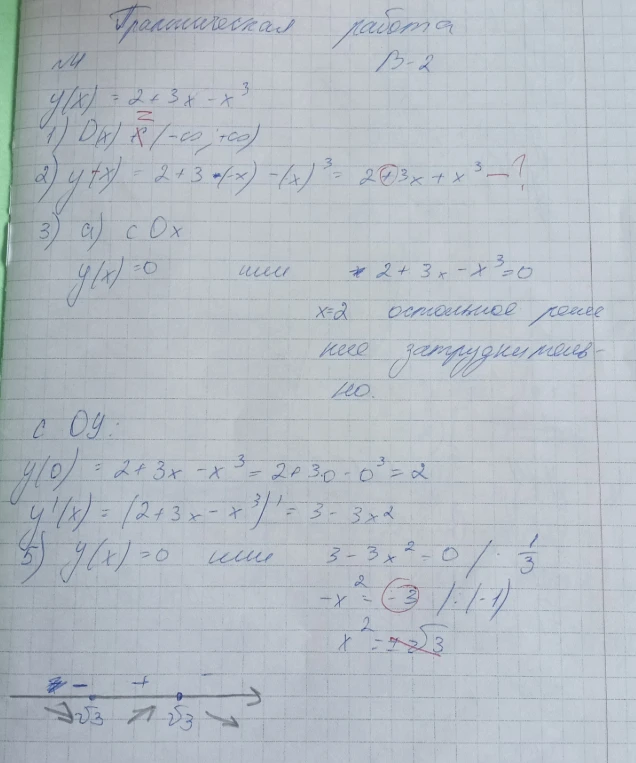 Практическая работа
№1 В-2
y(x) = 2 + 3x - x³
1) D(x) = (-∞, +∞)
2) y(-x) = 2 + 3·(-x) - (x)³ = 2 + 3x + x³ - ?
3) а) с Ox
y(x) = 0 или 2 + 3x - x³ = 0
x=2 остольное реше
ние затруднитель-
но.
с ОУ:
y(0) = 2 + 3x - x³ = 2 + 3·0 - 0³ = 2
y'(x) = (2 + 3x - x³)' = 3 - 3x2
5) y(x) = 0 или 3 - 3x² = 0 / · 1/3
-x² = -3 /:(-1)
x² = ±√3
- + -
√3 √3